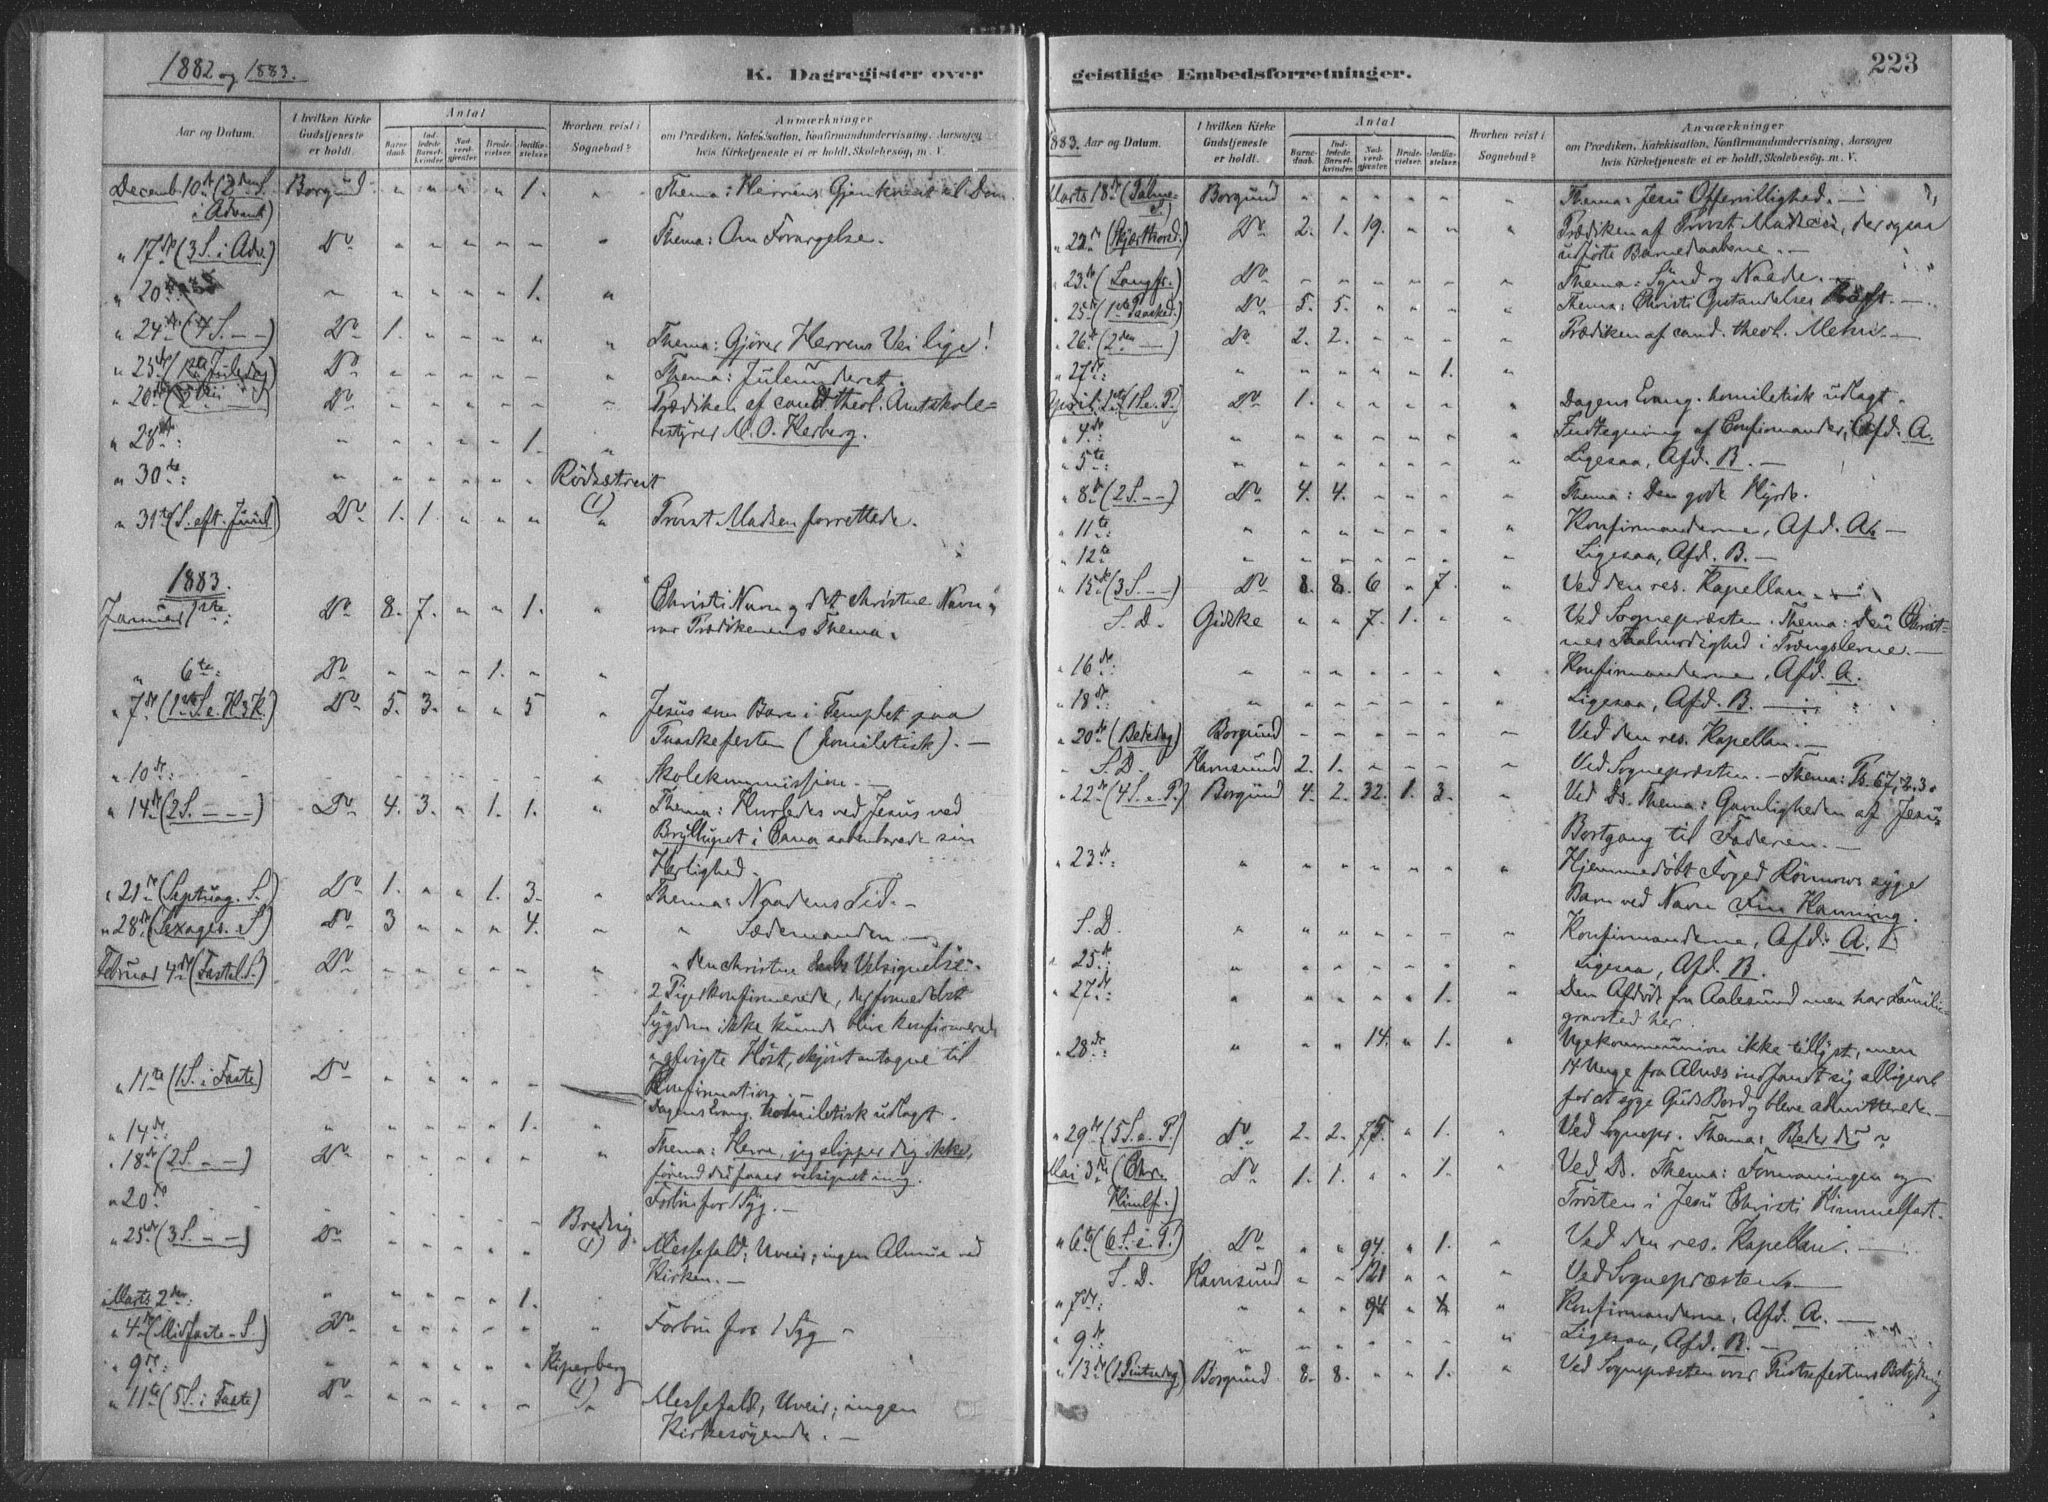 1882 og 1883.
K. Dagregister over
Aar og Datum.
I hvilken Kirke Gudstjeneste er holdt.
Antal
Barnedaab.
Indledede Barselkvinder.
Nadverdgjæster.
Brudevielser.
Jordfæstelser.
Hvorhen reist i Sognebud?
Anmærkninger
om Prædiken, Katekisation, Konfirmandundervisning, Aarsagen
hvis Kirketjeneste ei er holdt, Skolebesøg, m. V.
Decemb. 10de (2den S. Borgund " " " " 1. " Thema: Herrens Gjenkomst til Dom.
i Advent)
" 17de (3 S. i Adv.) Do " " " " " " Thema: Om Forargelse.
" 20 " " " " " 1. "
" 24de (4 S. – –) Do 1. " " " " " Thema: Gjører Herrens Vei lige!
" 25de (1ste Juledag) Do " " " " " " Thema: Juleunderet.
" 26de Do " " " " " " Prædiken af cand. theol. Amtskole-
bestyrer M. O. Herberg.
" 28de: " " " " " 1. "
" 30te: " " " " " " Rødsætreit
(1)
" 31te (S. eft. Juul) Do 1. 1. " " " " Provst Madsen forrettede.
1883.
Januar 1ste: Do 8. 7. " " 1. " "Christi Navn og det christne Navn"
var Prædikenens Thema.
" 6te: Do " " " 1. " "
" 7de (1ste S. e. H3K.) Do 5. 3. " " 5 " Jesus som Barn i Templet paa
Paaskefesten (homiletisk). –
" 10de: " " " " " " Skolekommission. –
" 14de (2 S. – – –) Do 4. 3. " 1. 1. " Thema: Hvorledes ved Jesus ved
Bryllupet i Cana aabenbarede sin
Herlighed.
" 21de (Septuag. S.) Do 1. " " 1. 3. " Thema: Naadens Tid. –
" 28de (Sexages. S) Do 3 " " " 4. " " Sædemanden. –
Februar 4de (Fastel. S.) Do " " " " " " " den christne Daabs Velsignelse".
2 Piger konfirmerede, der formedelst
Sygdom ikke kunde blive konfirmerede
afvigte Høst, skjønt antagne til
Konfirmation. –
" 11te (1 S. i Faste) Do " " " " " Dagens Evang. homiletisk udlagt.
" 14de: " " " " " 1. "
" 18de (2 S. – –) Do " " " " " " Thema: Herre, jeg slipper dig ikke,
førend du faaer velsignet mig.
" 20de " " " " " Bredvig (1) Forbøn for 1 Syg. –
" 25de (3 S. – –) Do " " " " " " Messefald; Uveir; ingen Almue ved
Kirken. –
Marts 2den: " " " " " 1. "
" 4de (Midfaste-S.) Do " " " " " " Forbøn for 1 Syg –
" 9de: " " " " " " Kiperberg
(1)
" 11te (5 S. i Faste) Do " " " " " " Messefald, Uveir; ingen
Kirkesøgende. –
geistlige Embedsforretninger.
223
1883. Aar og Datum.
I hvilken Kirke Gudstjeneste er holdt.
Antal
Barnedaab.
Indledede Barselkvinder.
Nadverdgjæster.
Brudevielser.
Jordfæstelser.
Hvorhen reist i Sognebud?
Anmærkninger
om Prædiken, Katekisation, Konfirmandundervisning, Aarsagen
hvis Kirketjeneste ei er holdt, Skolebesøg, m. V.
Marts 18de (Palme- Borgund " " " " " " Thema: Jesu Offervillighed. –
S.)
" 22de (Skjærthorsd.) Do 2. 1. 19. " " " Prædiken af Provst Madsen, der ogsaa
udførte Barnedaabene. –
" 23de (Langfr.) Do " " " " " " Thema: Synd og Naade. –
" 25de (1ste Paasked.) Do 5. 5. " " " " Thema: Christi Opstandelses Kraft. –
" 26de (2den –) Do 2. 2. " " " " Prædiken af cand. theol. Mehn. –
" 27de: " " " " " 1. "
April 1ste (1 S. e. P.) Do 1. " " " " " Dagens Evang. homiletisk udlagt.
" 4de: " " " " " " " Indtegning af Confirmander, Afd. A.
" 5te " " " " " " " Ligesaa, Afd. B. –
" 8de (2 S. – –) Do 4. 4. " " " " Thema: Den gode Hyrde.
" 11te: " " " " " " " Konfirmanderne, Afd. A. –
" 12te " " " " " " " Ligesaa, Afd. B. –
" 15de (3 S. – –) Do 8. 8. 6 " 7. " Ved den res. Kapellan. –
S. D. Gidske " " 7. 1. " " Ved Sognepræsten. Thema: Den Christ-
nes Taalmodighed i Trængslerne. –
" 16de " " " " " " " Konfirmanderne, Afd. A.
" 18de: " " " " " " " Ligesaa, Afd. B. –
" 20de (Bededag) Borgund " " " " " " Ved den res. Kapellan. –
" S. D. Hamsund 2. 1. " " " " Ved Sognepræsten. – Thema: Ps. 67, 2. 3.
" 22de (4 S. e. P.) Borgund 4. 2. 32. 1. 3. " Ved Ds. Thema: Gavnligheden af Jesu
Bortgang til Faderen. –
" 23de: " " " " " " " Hjemmedøbt Foged Rønnows syge
Barn ved Navn Finn Hanning.
S. D. " " " " " " " Konfirmanderne, Afd. A.
" 25de: " " " " " " " Ligesaa, Afd. B.
" 27de: " " " " " 1. " Den Afdøde fra Aalesund men har Familie-
gravsted her.
" 28de: " " " 14. " 1. " Ugekommunion ikke tillyst, men
14 Unge fra Alnæs indfandt sig alligevel
for at søge Guds Bord og bleve admitterede. –
" 29de (5 S. e. P.) Do 2. 2. 75. " 1. " Ved Sognepr. Thema: Beder du
Mai 3de (Chr. Do 1. 1. " " 1. " Ved Ds. Thema: Formaningen og
Himlf.) Trøsten i Jesu Christi Himmelfart.
" 6te (6 S. e. P.) Do " " 94. " 1. " Ved den res. Kapellan. –
S. D. Hamsund " " 121 " " " Ved Sognepræsten. –
" 7de: " " " 94. " 1. " Konfirmanderne, Afd. A. –
" 9de " " " " " " " Ligesaa, Afd. B. –
" 13de (1 Pintsedag) Borgund 8. 8. " " 1. " Ved Sognepræsten over Pintsefestens Betydning